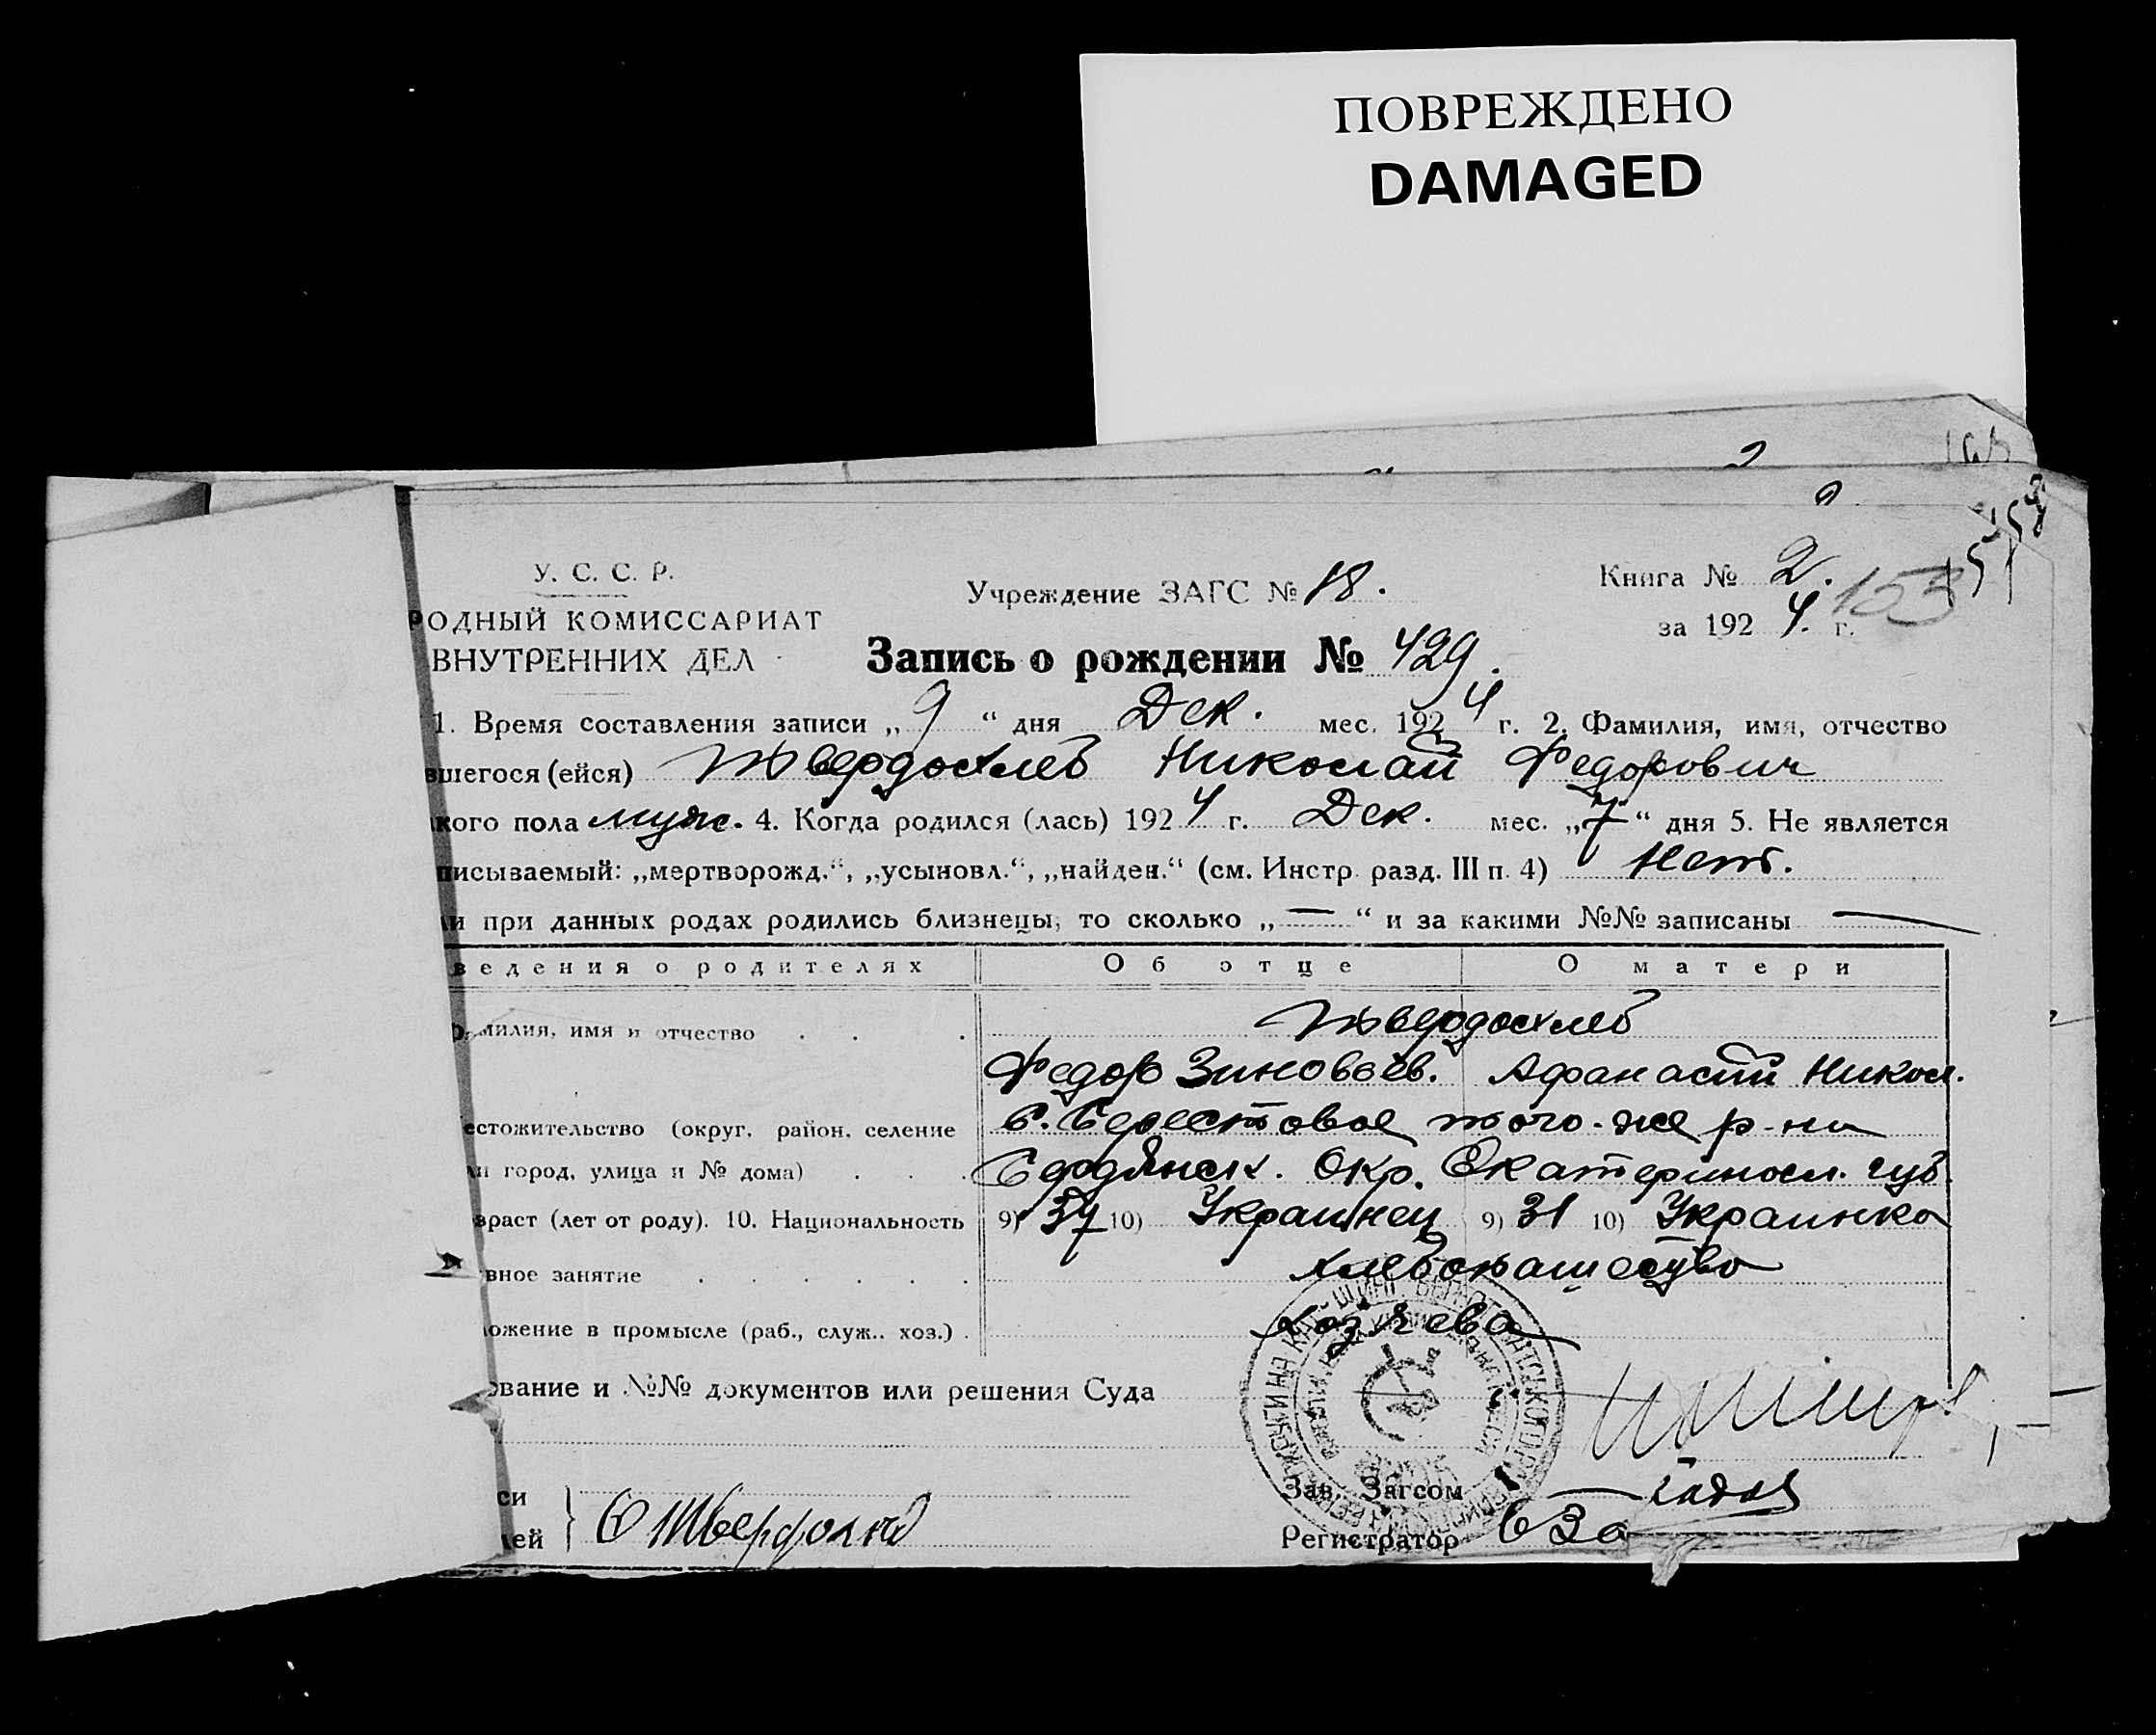 ПОВРЕЖДЕНО
DAMAGED
2
У. С. С. Р.
РОДНЫЙ КОМИССАРИАТ
ВНУТРЕННИХ ДЕЛ
Учреждение ЗАГС № 18.
Книга № 2.
за 1924. г.
153
Запись о рождении № 429.
1. Время составления записи „9“ дня Дек. мес. 1924 г. 2. Фамилия, имя, отчество
вшегося (ейся) Твердохлеб Николай Федорович
кого пола муж. 4. Когда родился (лась) 1924 г. Дек. мес. „7“ дня 5. Не является
писываемый: „мертворожд.“, „усыновл.“, „найден.“ (см. Инстр. разд. III п. 4) Нет.
ли при данных родах родились близнецы, то сколько „—“ и за какими №№ записаны —
ведения о родителях Об отце О матери
милия, имя и отчество . . . Твердохлеб
Федор Зиновьев. Афанасии Никол.
естожительство (округ, район, селение С. Берестовое того-же р-на
ли город, улица и № дома) . . . Бердянск. Окр. Екатериносл. губ.
зраст (лет от роду). 10. Национальность 9) 37 10) Украинец 9) 31 10) Украинка
вное занятие . . . . . . Хлебопашество
ожение в промысле (раб., служ., хоз.) . Хозяева
ование и №№ документов или решения Суда
си
ей } Твердохлеб
Зав. Загсом
Регистратор